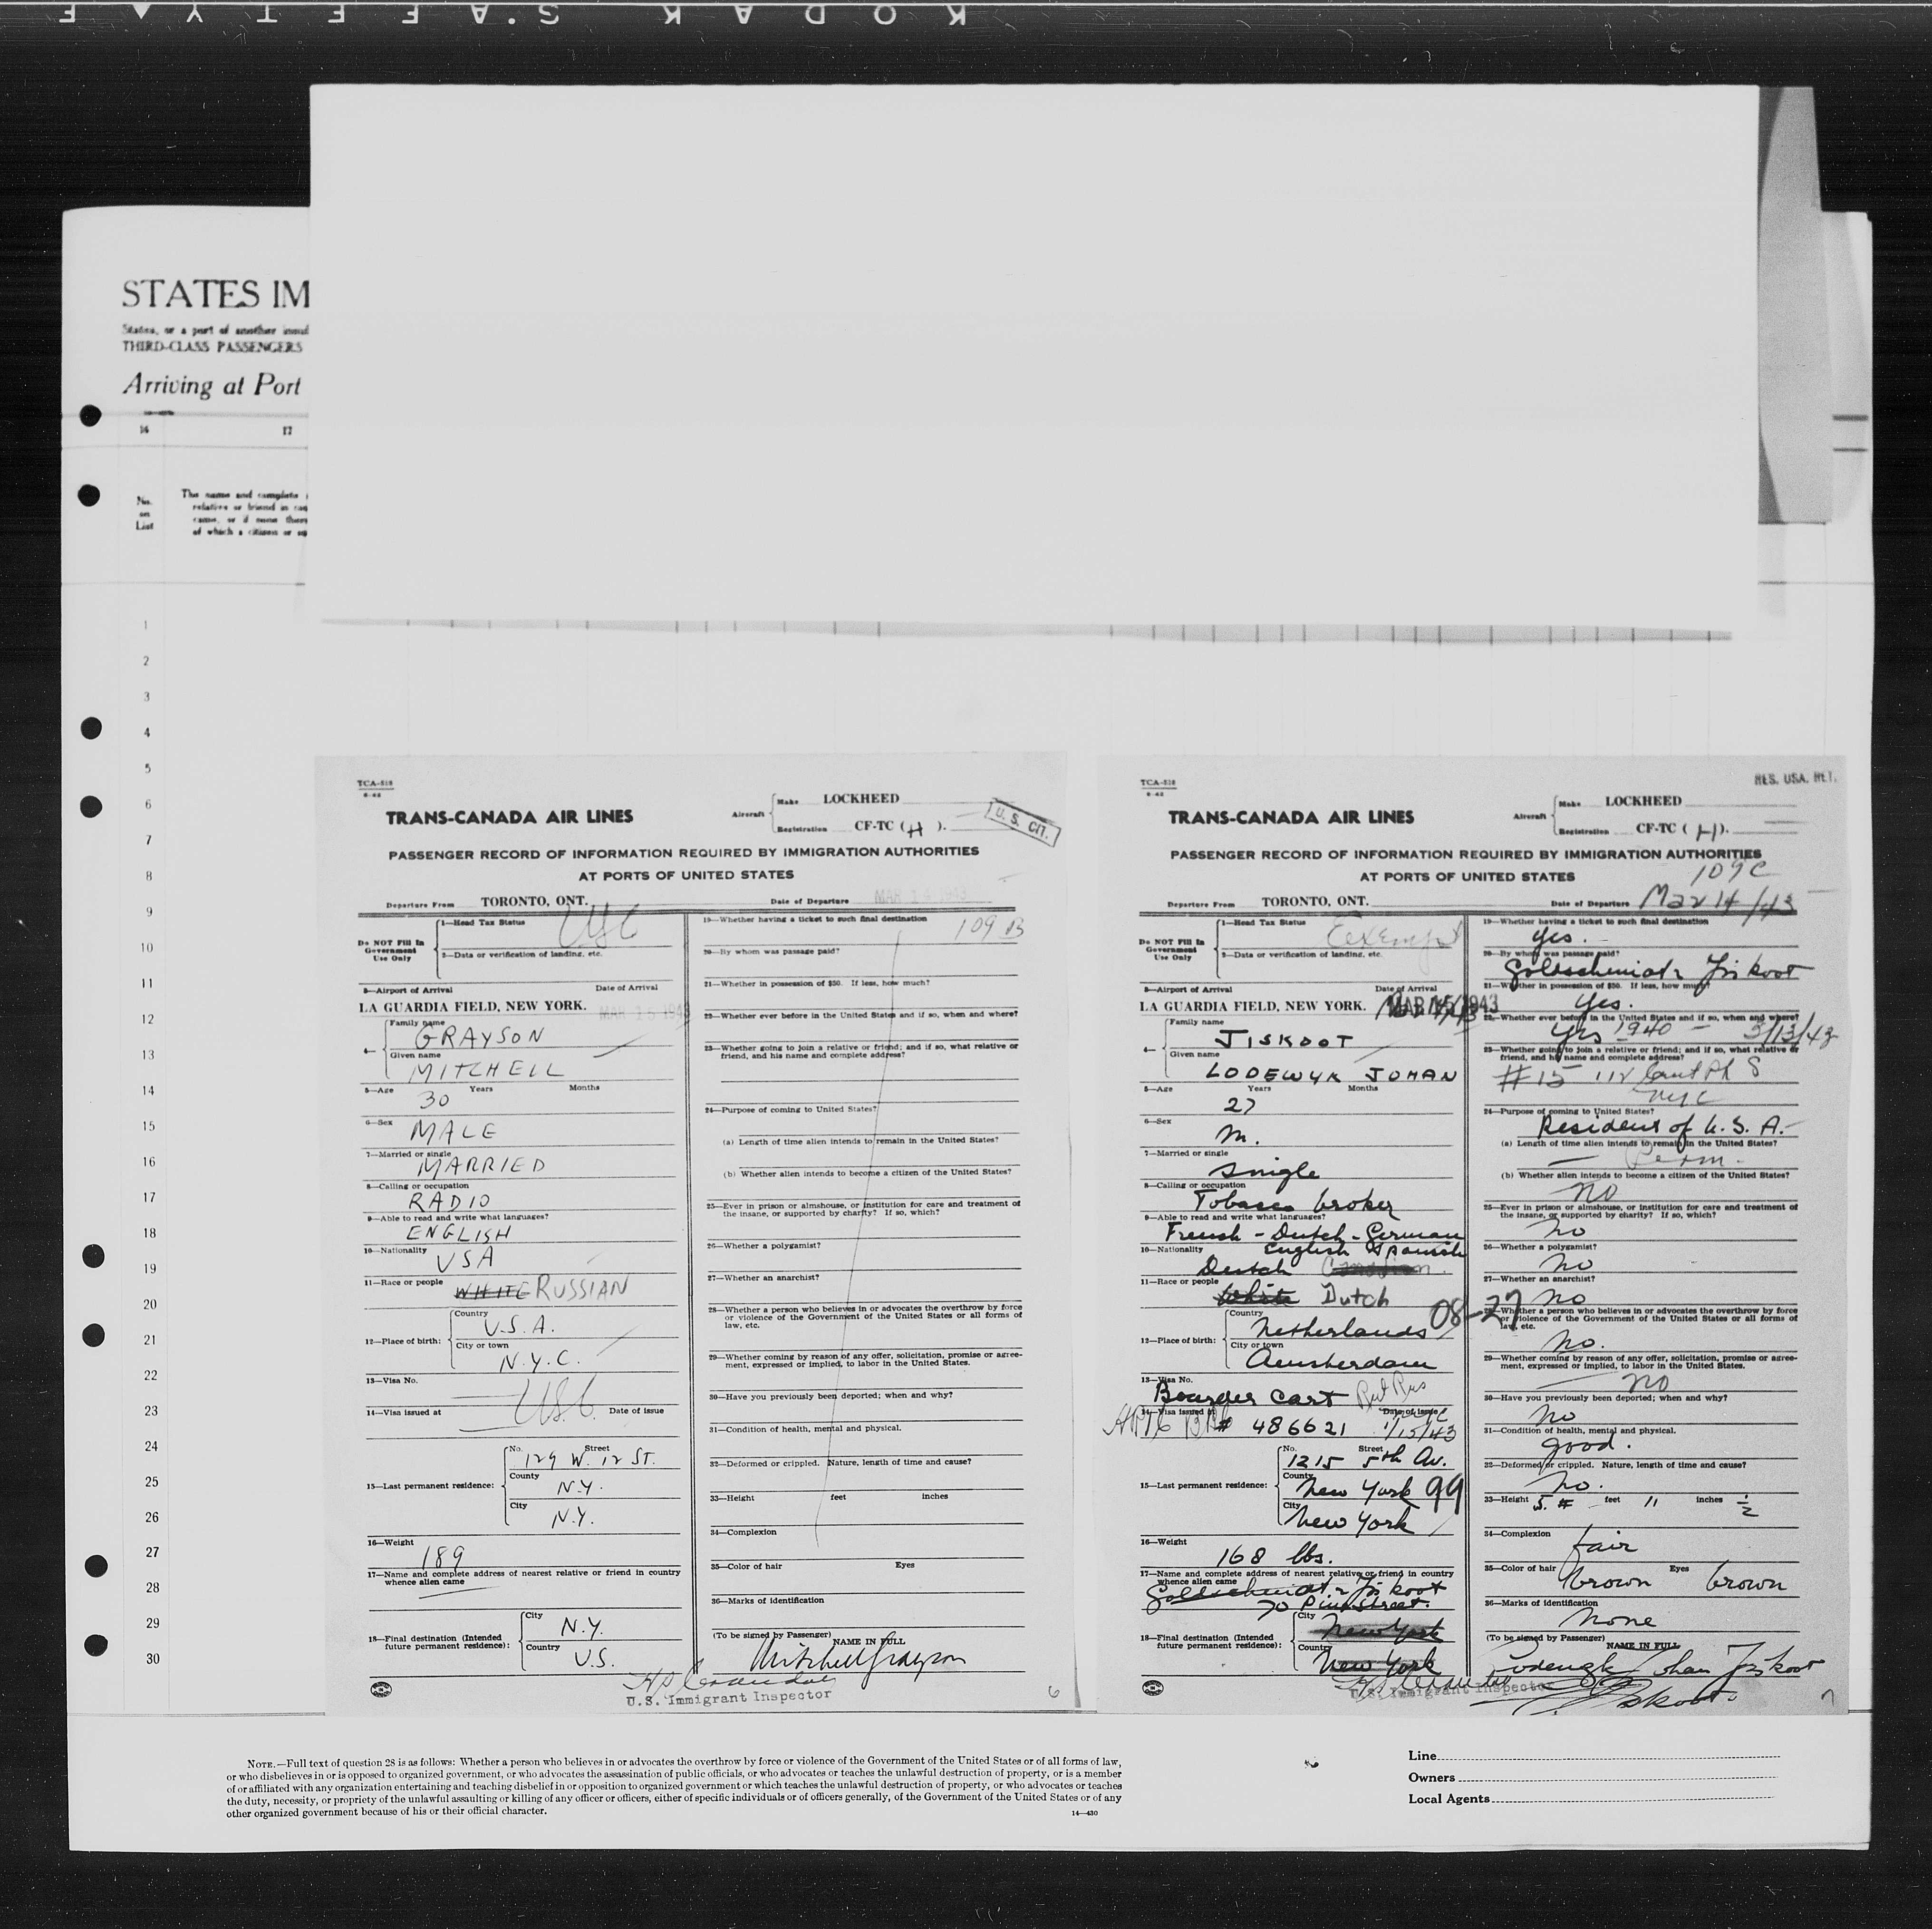 KODAK S'AFETY
STATES IM
States, or a port of another insul
THIRD-CLASS PASSENGERS
Arriving at Port
16 17
No.
on
List
The name and complete
relative or friend in cou
came, or if none there
of which a citizen or su
1
2
3
4
5
6
7
8
9
10
11
12
13
14
15
16
17
18
19
20
21
22
23
24
25
26
27
28
29
30
TCA-518
TRANS-CANADA AIR LINES
Aircraft
Make LOCKHEED
Registration CF-TC (H).
U. S. CIT.
PASSENGER RECORD OF INFORMATION REQUIRED BY IMMIGRATION AUTHORITIES
AT PORTS OF UNITED STATES
Departure From TORONTO, ONT.
Date of Departure MAR 14 1943
Do NOT Fill In
Government
Use Only
1—Head Tax Status
USC
2—Data or verification of landing, etc.
3—Airport of Arrival Date of Arrival
LA GUARDIA FIELD, NEW YORK. MAR 15 1943
4—
Family name
GRAYSON
Given name
MITCHELL
5—Age Years Months
30
6—Sex
MALE
7—Married or single
MARRIED
8—Calling or occupation
RADIO
9—Able to read and write what languages?
ENGLISH
10—Nationality
USA
11—Race or people
WHITE RUSSIAN
12—Place of birth:
Country
U.S.A.
City or town
N.Y.C.
13—Visa No.
USC
14—Visa issued at Date of issue
15—Last permanent residence:
No. Street
129 W. 12 ST.
County
N.Y.
City
N.Y.
16—Weight
189
17—Name and complete address of nearest relative or friend in country
whence alien came
18—Final destination (Intended
future permanent residence):
City
N.Y.
Country
U.S.
19—Whether having a ticket to such final destination
109 B
20—By whom was passage paid?
21—Whether in possession of $50. If less, how much?
22—Whether ever before in the United States and if so, when and where?
23—Whether going to join a relative or friend; and if so, what relative or
friend, and his name and complete address?
24—Purpose of coming to United States?
(a) Length of time alien intends to remain in the United States?
(b) Whether alien intends to become a citizen of the United States?
25—Ever in prison or almshouse, or institution for care and treatment of
the insane, or supported by charity? If so, which?
26—Whether a polygamist?
27—Whether an anarchist?
28—Whether a person who believes in or advocates the overthrow by force
or violence of the Government of the United States or all forms of
law, etc.
29—Whether coming by reason of any offer, solicitation, promise or agree-
ment, expressed or implied, to labor in the United States.
30—Have you previously been deported; when and why?
31—Condition of health, mental and physical.
32—Deformed or crippled. Nature, length of time and cause?
33—Height feet inches
34—Complexion
35—Color of hair Eyes
36—Marks of identification
(To be signed by Passenger) NAME IN FULL
Mitchell Grayson
U.S. Immigrant Inspector
6
RES. USA. RET.
TCA-518
TRANS-CANADA AIR LINES
Aircraft
Make LOCKHEED
Registration CF-TC (H).
PASSENGER RECORD OF INFORMATION REQUIRED BY IMMIGRATION AUTHORITIES
AT PORTS OF UNITED STATES
109 C
Departure From TORONTO, ONT.
Date of Departure Mar 14/43
Do NOT Fill In
Government
Use Only
1—Head Tax Status
Exempt
2—Data or verification of landing, etc.
3—Airport of Arrival Date of Arrival
LA GUARDIA FIELD, NEW YORK. MAR 15 1943
4—
Family name
JISKOOT
Given name
LODEWYK JOHAN
5—Age Years Months
27
6—Sex
m.
7—Married or single
single
8—Calling or occupation
Tobacco broker
9—Able to read and write what languages?
French - Dutch - German
10—Nationality English Spanish
Dutch
11—Race or people
White Dutch
12—Place of birth:
Country
Netherlands 08-27
City or town
Amsterdam
13—Visa No.
Bourder Cart
14—Visa issued at Date of issue
# 486621 1/15/43
15—Last permanent residence:
No. Street
1215 5th Av.
County
New York 99
City
New York
16—Weight
168 lbs.
17—Name and complete address of nearest relative or friend in country
whence alien came
Goldschmidt & Jiskoot
70 Pine Street.
18—Final destination (Intended
future permanent residence):
City
New York
Country
New York
19—Whether having a ticket to such final destination
yes.
20—By whom was passage paid?
Goldschmidt & Jiskoot
21—Whether in possession of $50. If less, how much?
yes.
22—Whether ever before in the United States and if so, when and where?
yes 1940 - 3/13/43
23—Whether going to join a relative or friend; and if so, what relative or
friend, and his name and complete address?
#15 112 Cent Pk S
NYC
24—Purpose of coming to United States?
Resident of U.S.A.
(a) Length of time alien intends to remain in the United States?
Perm.
(b) Whether alien intends to become a citizen of the United States?
no
25—Ever in prison or almshouse, or institution for care and treatment of
the insane, or supported by charity? If so, which?
no
26—Whether a polygamist?
no
27—Whether an anarchist?
no
28—Whether a person who believes in or advocates the overthrow by force
or violence of the Government of the United States or all forms of
law, etc.
no.
29—Whether coming by reason of any offer, solicitation, promise or agree-
ment, expressed or implied, to labor in the United States.
no
30—Have you previously been deported; when and why?
no
31—Condition of health, mental and physical.
good.
32—Deformed or crippled. Nature, length of time and cause?
no.
33—Height 5 feet 11 inches ½
34—Complexion
fair
35—Color of hair Eyes
brown brown
36—Marks of identification
none
(To be signed by Passenger) NAME IN FULL
Lodewyk Johan Jiskoot
U.S. Immigrant Inspector
Jiskoot
7
NOTE.—Full text of question 28 is as follows: Whether a person who believes in or advocates the overthrow by force or violence of the Government of the United States or of all forms of law,
or who disbelieves in or is opposed to organized government, or who advocates the assassination of public officials, or who advocates or teaches the unlawful destruction of property, or is a member
of or affiliated with any organization entertaining and teaching disbelief in or opposition to organized government or which teaches the unlawful destruction of property, or who advocates or teaches
the duty, necessity, or propriety of the unlawful assaulting or killing of any officer or officers, either of specific individuals or of officers generally, of the Government of the United States or of any
other organized government because of his or their official character.
14—430
Line
Owners
Local Agents